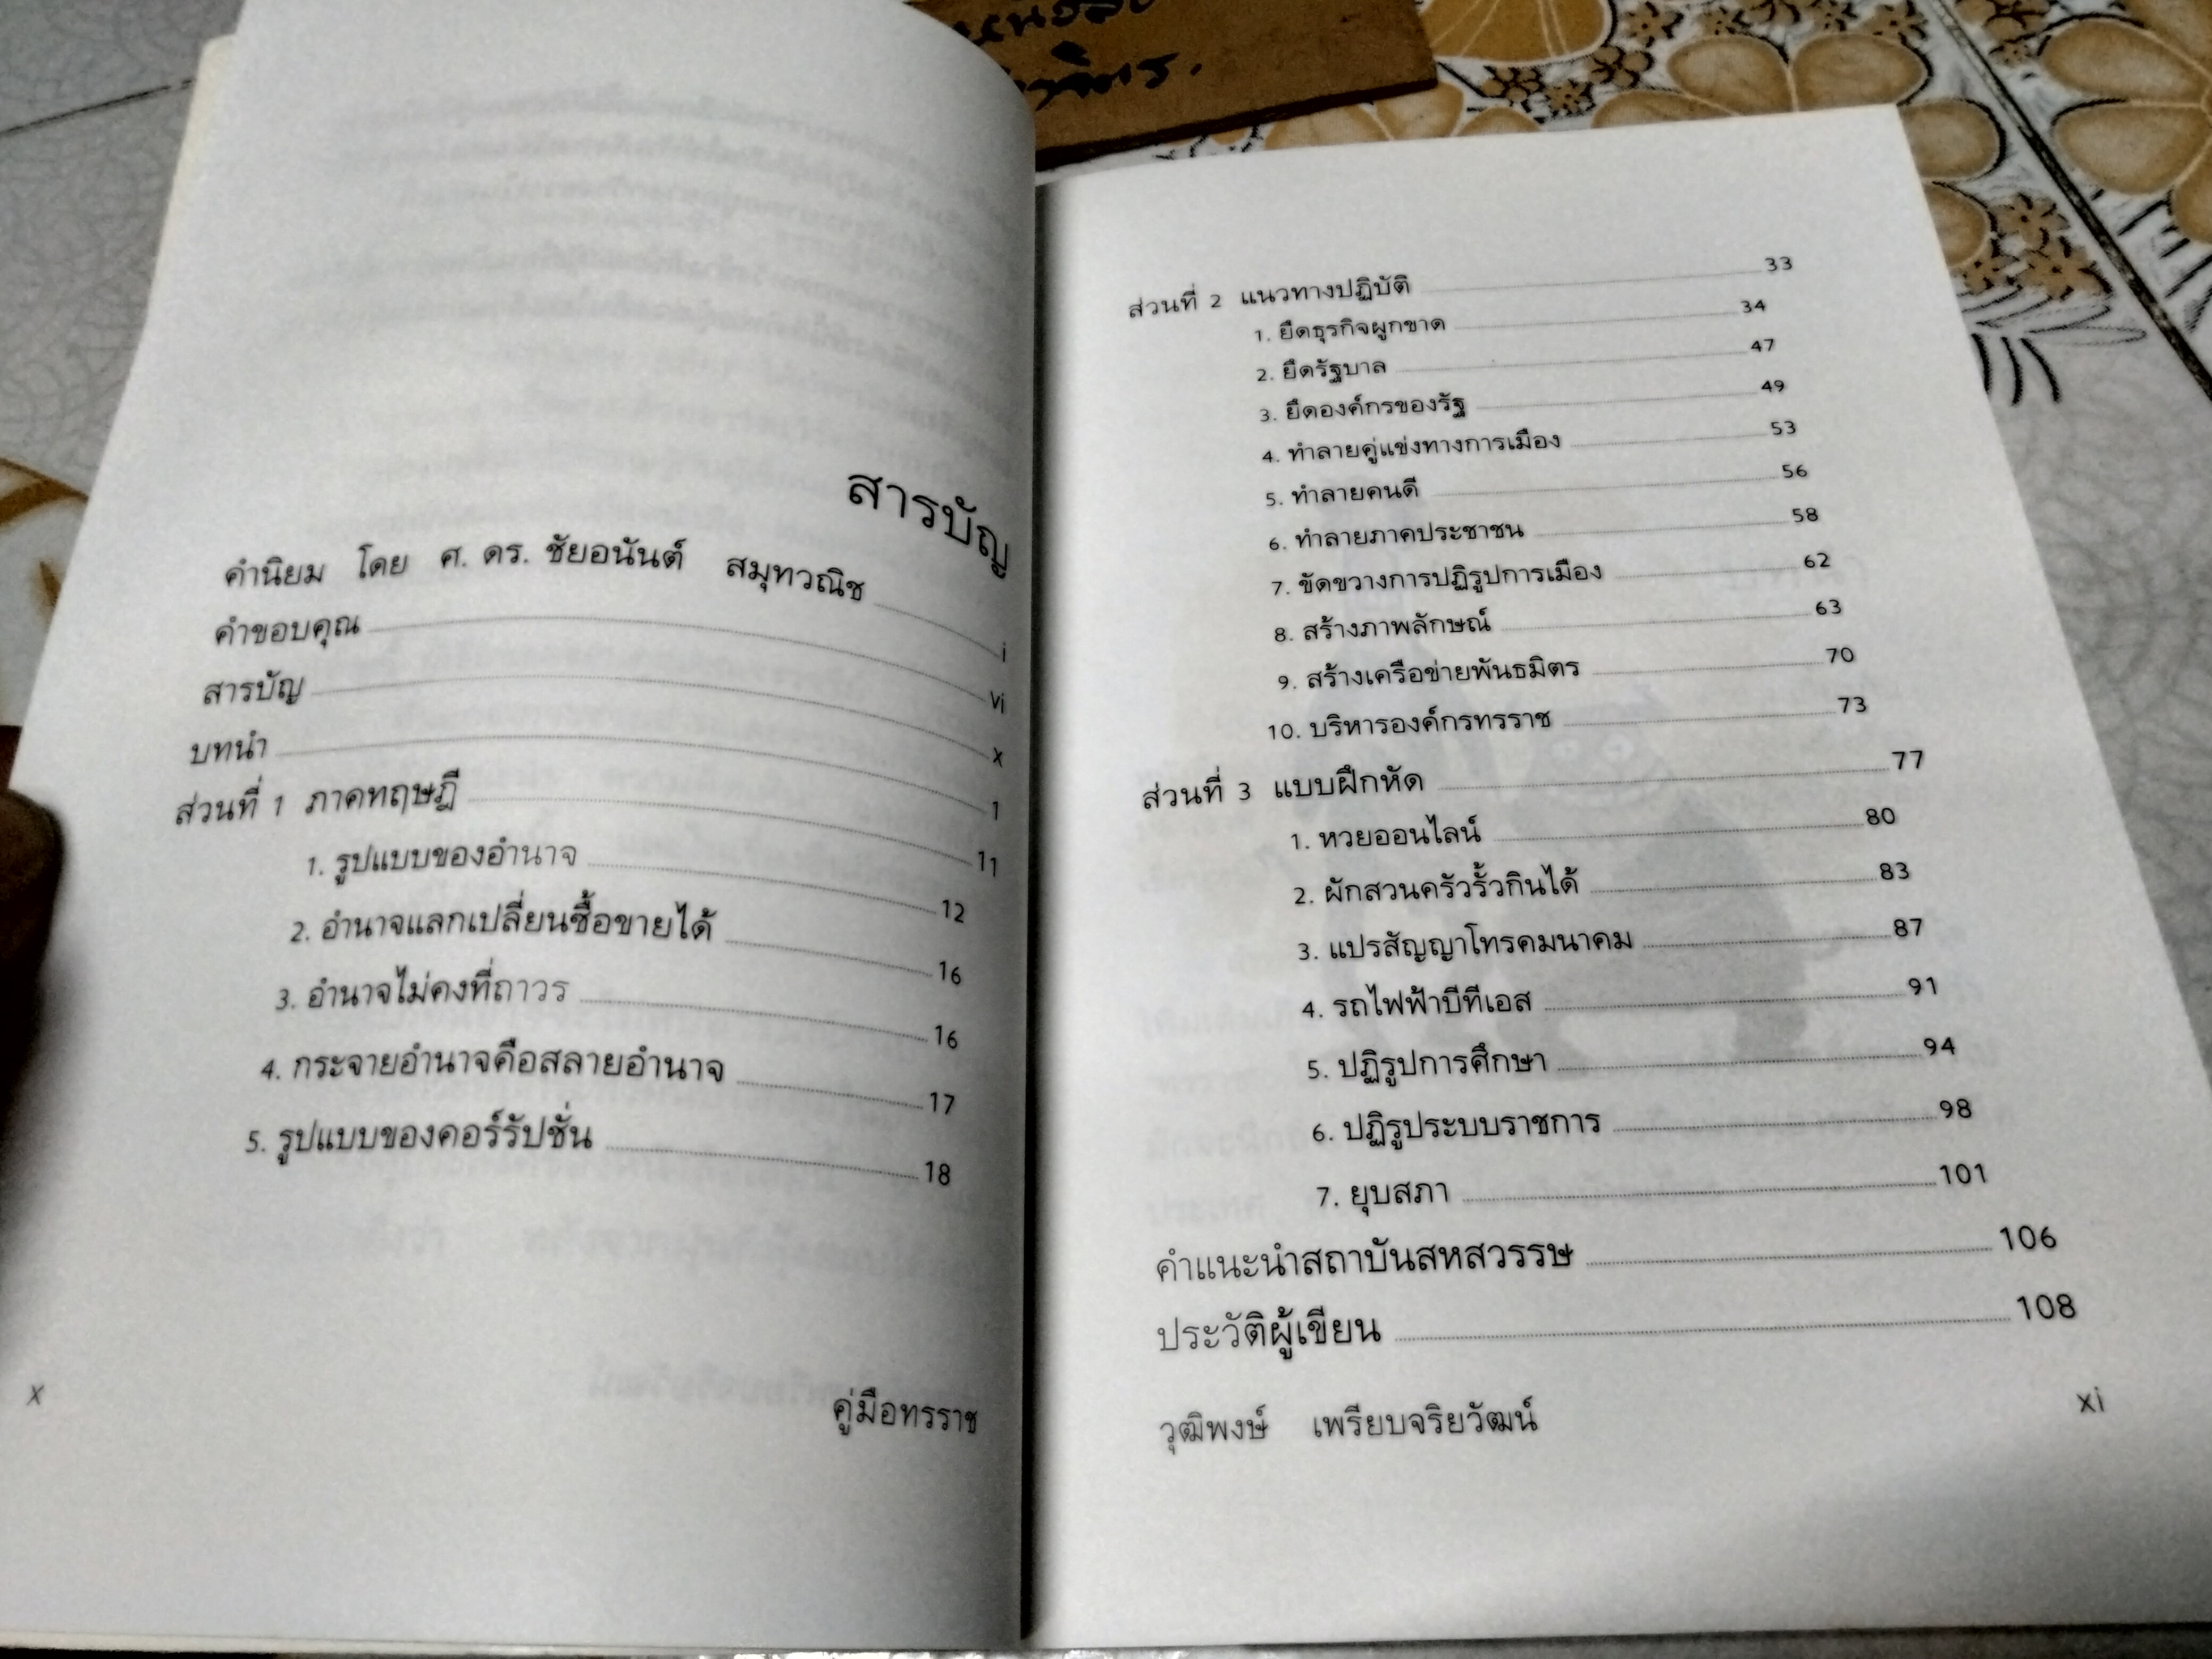 สารบัญ
คำนิยม โดย ศ. ดร. ชัยอนันต์ สมุทวณิช i
คำขอบคุณ vi
สารบัญ x
บทนำ 1
ส่วนที่ 1 ภาคทฤษฎี 11
1. รูปแบบของอำนาจ 12
2. อำนาจแลกเปลี่ยนซื้อขายได้ 16
3. อำนาจไม่คงที่ถาวร 16
4. กระจายอำนาจคือสลายอำนาจ 17
5. รูปแบบของคอร์รัปชั่น 18
x
คู่มือทรราช
ส่วนที่ 2 แนวทางปฏิบัติ 33
1. ยึดธุรกิจผูกขาด 34
2. ยึดรัฐบาล 47
3. ยึดองค์กรของรัฐ 49
4. ทำลายคู่แข่งทางการเมือง 53
5. ทำลายคนดี 56
6. ทำลายภาคประชาชน 58
7. ขัดขวางการปฏิรูปการเมือง 62
8. สร้างภาพลักษณ์ 63
9. สร้างเครือข่ายพันธมิตร 70
10. บริหารองค์กรทรราช 73
ส่วนที่ 3 แบบฝึกหัด 77
1. หวยออนไลน์ 80
2. ผักสวนครัวรั้วกินได้ 83
3. แปรสัญญาโทรคมนาคม 87
4. รถไฟฟ้าบีทีเอส 91
5. ปฏิรูปการศึกษา 94
6. ปฏิรูประบบราชการ 98
7. ยุบสภา 101
คำแนะนำสถาบันสหสวรรษ 106
ประวัติผู้เขียน 108
วุฒิพงษ์ เพรียบจริยวัฒน์
xi